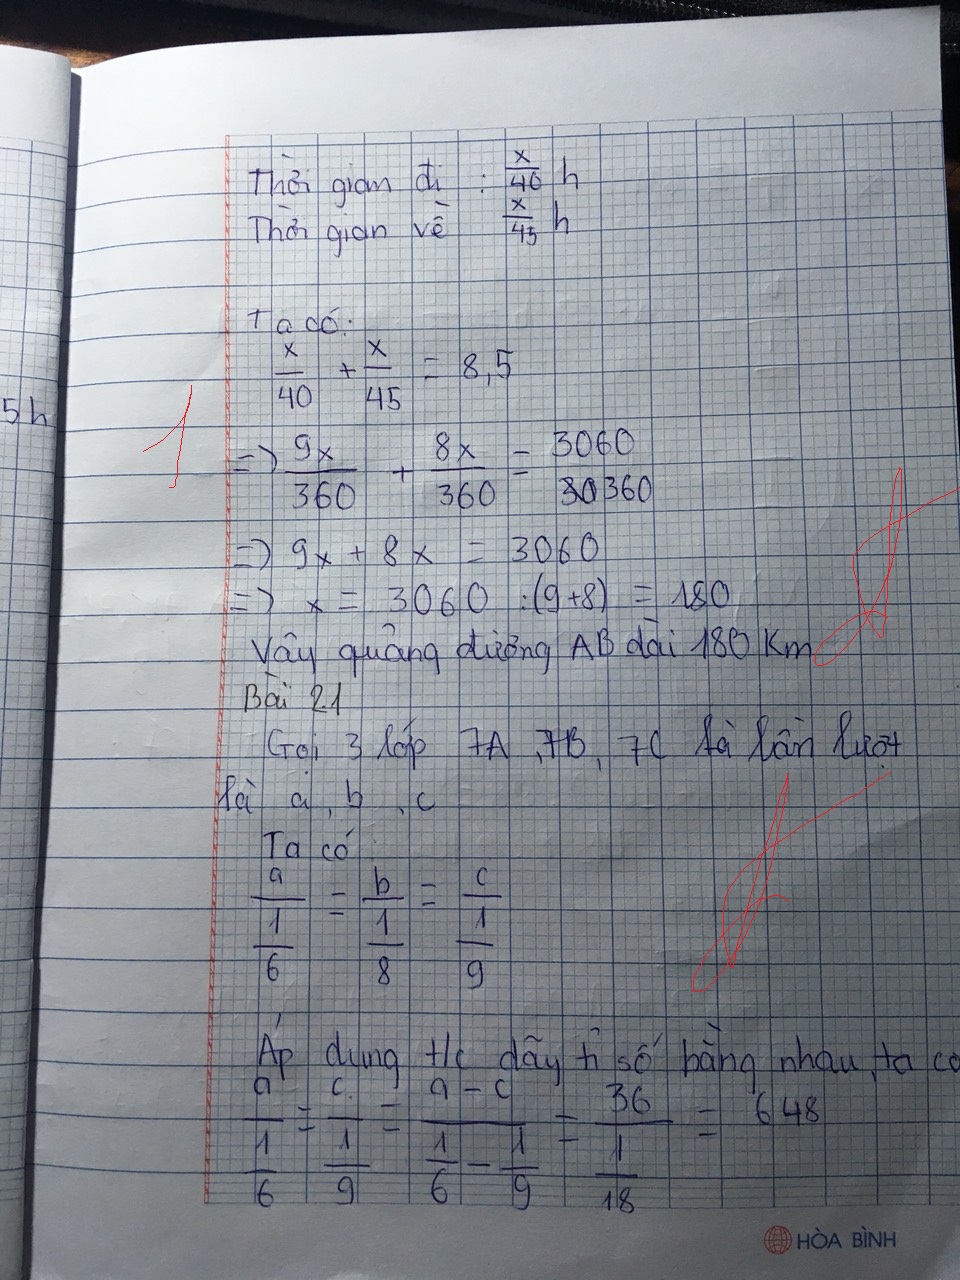 5h
Thời gian đi : x/40 h
Thời gian về x/45 h
Ta có:
x/40 + x/45 = 8,5
1
=> 9x/360 + 8x/360 = 3060/360
=> 9x + 8x = 3060
=> x = 3060 :(9+8) = 180
Vậy quảng đường AB dài 180 Km
Bài 21
Gọi 3 lớp 7A, 7B, 7C là lần lượt
là a, b, c
Ta có
a/(1/6) = b/(1/8) = c/(1/9)
Áp dụng t/c dãy tỉ số bằng nhau, ta có
a/(1/6) = c/(1/9) = (a - c)/(1/6 - 1/9) = 36/(1/18) = 648
HÒA BÌNH